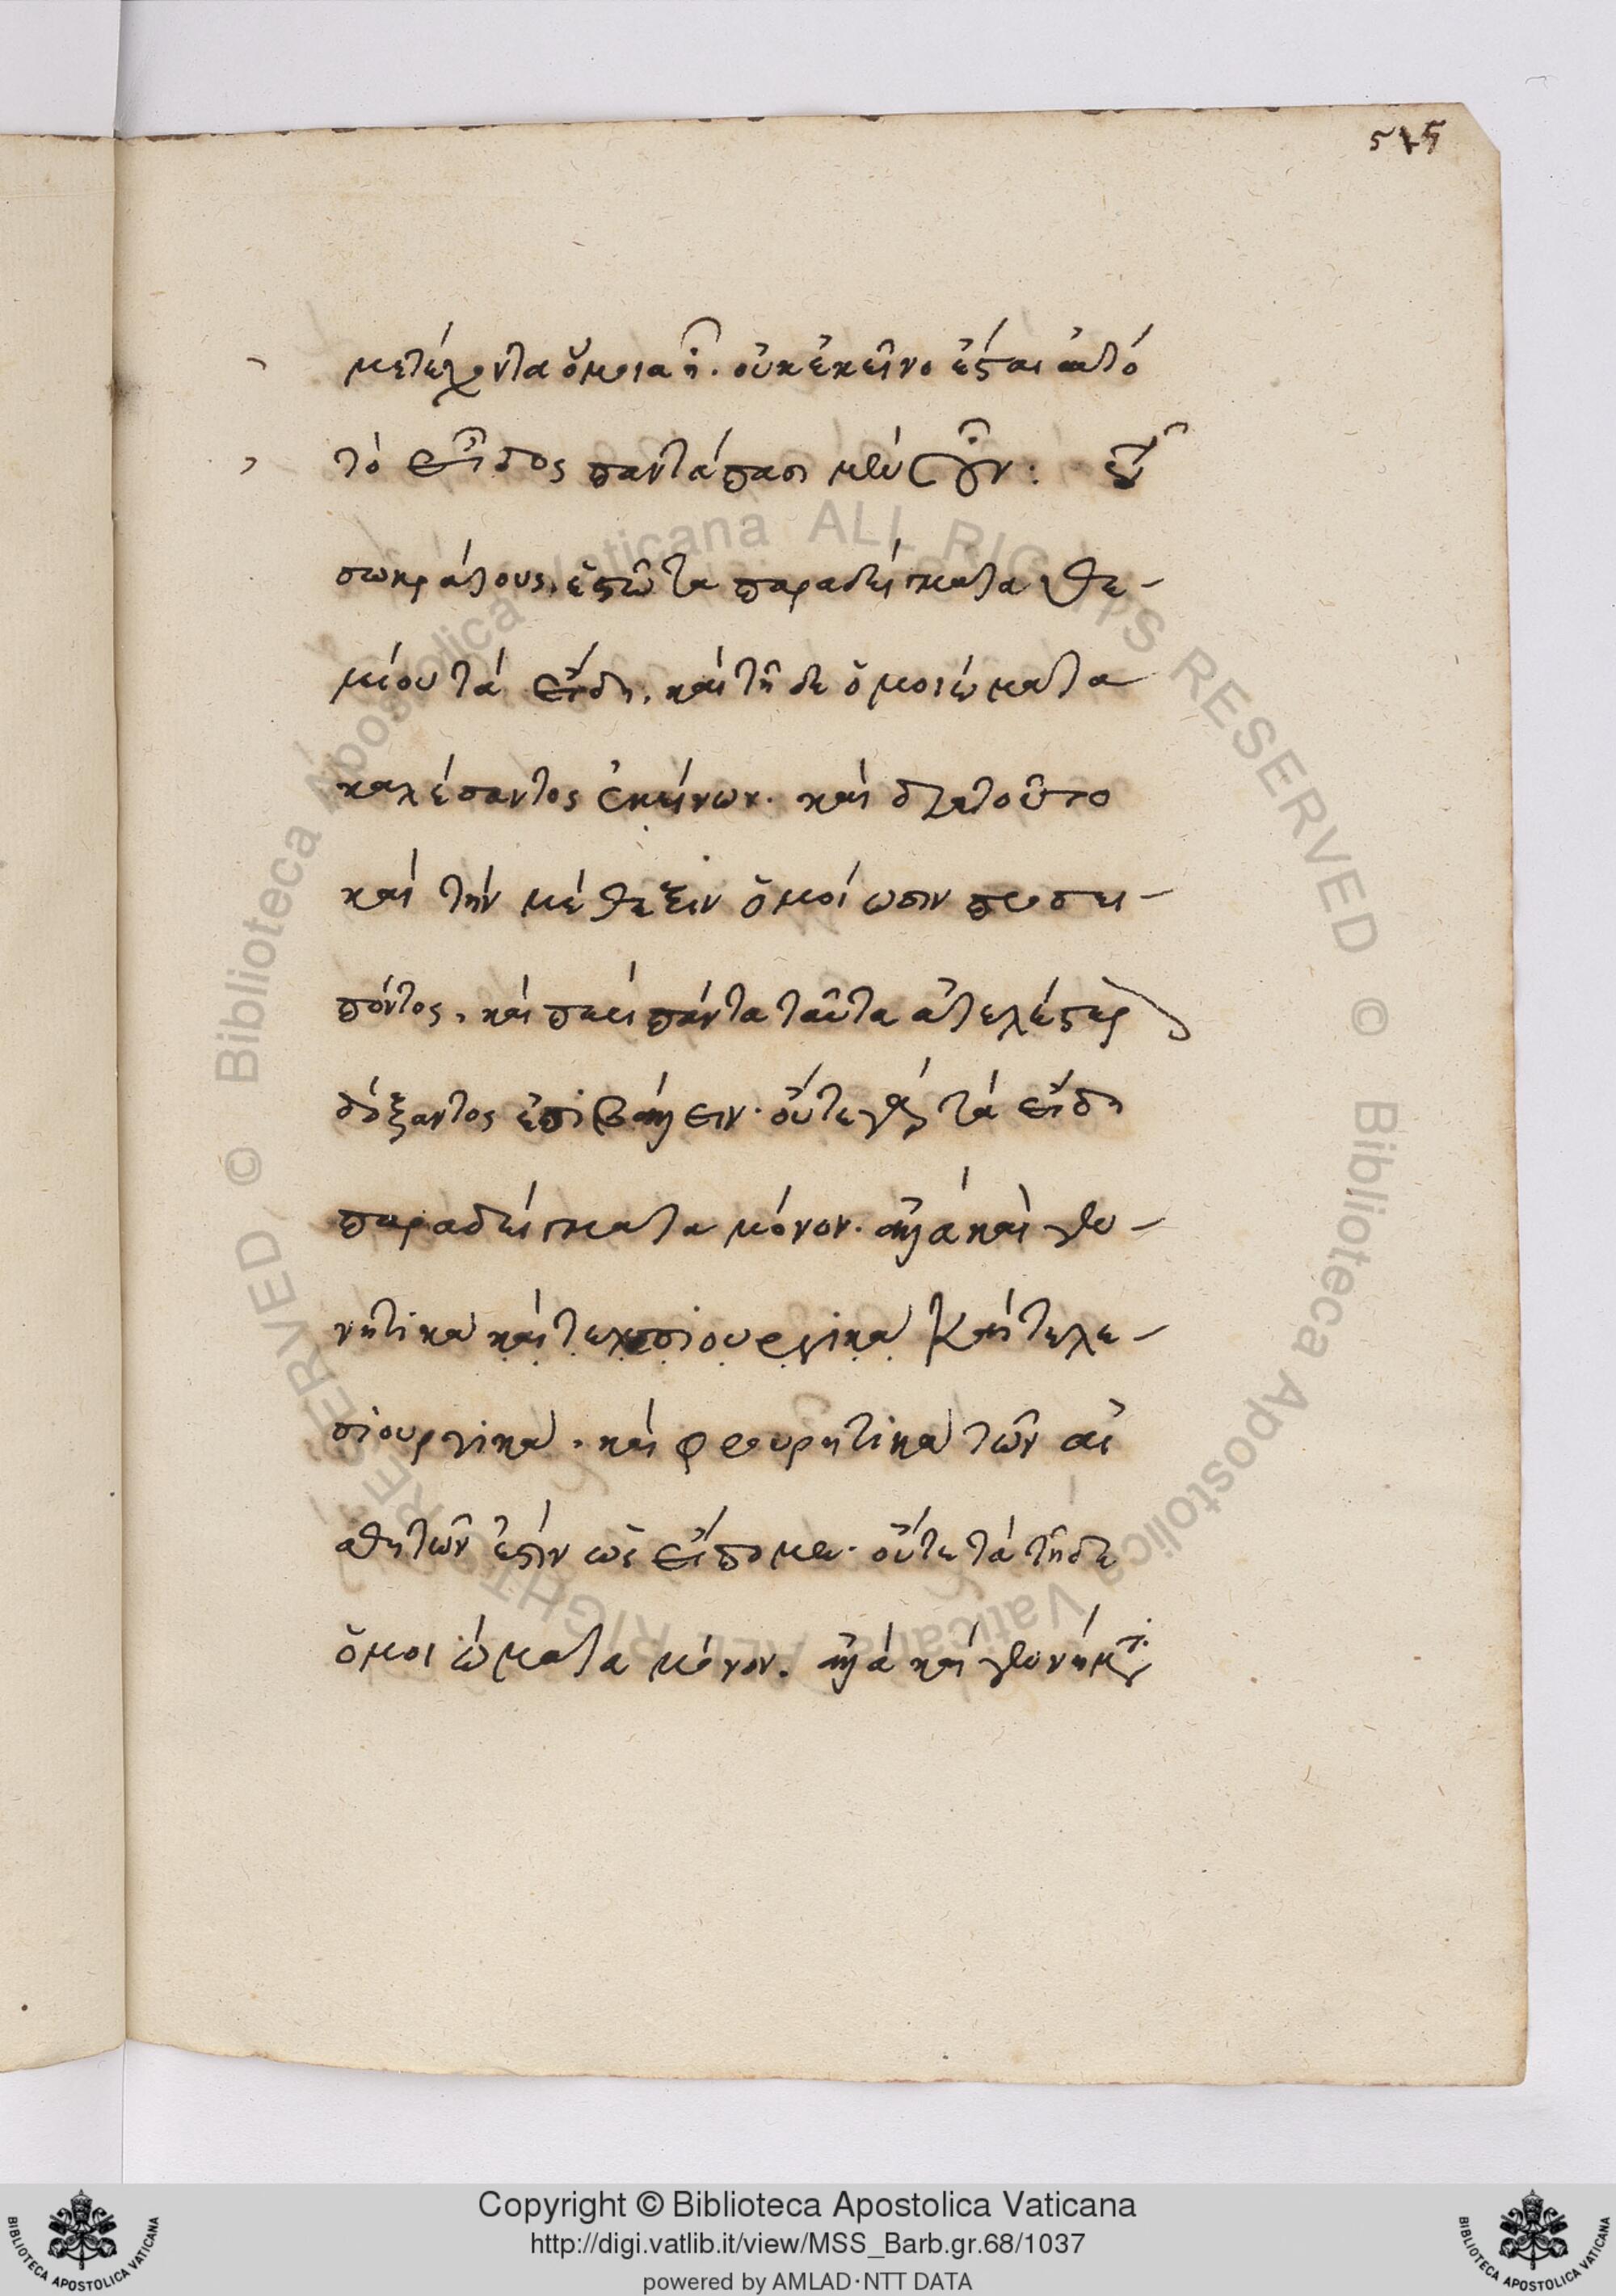 515
μετέχοντα ὅμοια ᾖ. οὐκ ἐκεῖνο ἔσται αὐτό
τὸ εἶδος παντάπασι μὲν οὖν:
σωκράτους, ἑστῶτα παραδείγματα θε-
μένου τὰ εἴδη, καὶ τῇδε ὁμοιώματα
καλέσαντος ἐκείνων. καὶ διατοῦτο
καὶ τὴν μέθεξιν ὁμοίωσιν προσει-
πόντος, καὶ περὶ πάντα ταῦτα ἀτελέστερ
δόξαντος ἐπιβάλλειν. οὔτε γὰρ τὰ εἴδη
παραδείγματα μόνον. ἀλλὰ καὶ γεν-
νητικὰ καὶ τελεσιουργικὰ καὶ τελε-
σιουργικὰ. καὶ φρουρητικὰ τῶν αἰ
σθητῶν ἐστὶν ὡς εἴπομεν. οὔτε τὰ τῇδε
ὁμοιώματα μόνον. ἀλλὰ καὶ γεννήματ
Copyright © Biblioteca Apostolica Vaticana
http://digi.vatlib.it/view/MSS_Barb.gr.68/1037
powered by AMLAD·NTT DATA
BIBLIOTECA APOSTOLICA VATICANA
BIBLIOTECA APOSTOLICA VATICANA
© Biblioteca Apostolica Vaticana ALL RIGHTS RESERVED © Biblioteca Apostolica Vaticana ALL RIGHTS RESERVED